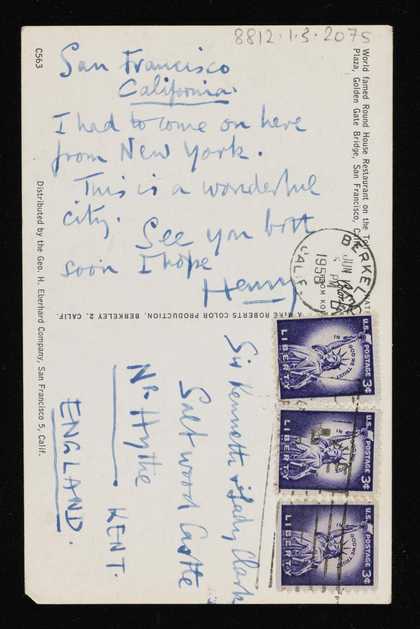 8812.1.3.2075
San Francisco
California.
I had to come on here
from New York.
This is a wonderful
city.
See you both
soon I hope
Henry
Sir Kenneth & Lady Clark
Saltwood Castle
Nr Hythe
KENT.
ENGLAND.
C563
Distributed by the Geo. H. Eberhard Company, San Francisco 5, Calif.
World famed Round House Restaurant on the
Plaza, Golden Gate Bridge, San Francisco,
A MIKE ROBERTS COLOR PRODUCTION, BERKELEY 2, CALIF.
BERKELEY
CALIF.
JUN
PM
1958
U.S. POSTAGE
IN GOD WE TRUST
LIBERTY
3¢
U.S. POSTAGE
IN GOD WE TRUST
LIBERTY
3¢
U.S. POSTAGE
IN GOD WE TRUST
LIBERTY
3¢